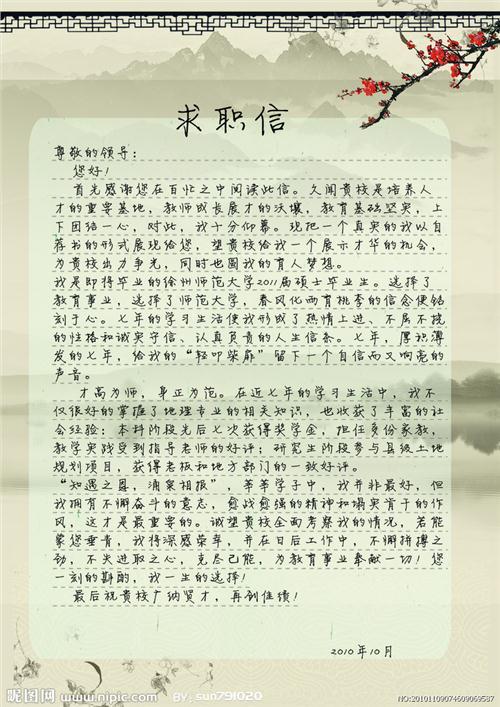 求职信
尊敬的领导：
您好！
首先感谢您在百忙之中阅读此信。久闻贵校是培养人
才的重要基地，教师成长展才的沃壤，教育基础坚实，上
下团结一心，对此，我十分仰慕。现把一个真实的我以自
荐书的形式展现给您，望贵校给我一个展示才华的机会，
为贵校出力争光，同时也圆我的育人梦想。
我是即将毕业的徐州师范大学2011届硕士毕业生。选择了
教育事业，选择了师范大学，春风化雨育桃李的信念便铭
刻于心。七年的学习生活使我形成了热情上进、不屈不挠
的性格和诚实守信、认真负责的人生信条。七年，厚积薄
发的七年，给我的“轻叩柴扉”留下一个自信而又响亮的
声音。
才高为师，身正为范。在近七年的学习生活中，我不
仅很好的掌握了地理专业的相关知识，也收获了丰富的社
会经验：本科阶段先后七次获得奖学金，担任多份家教，
教学实践受到指导老师的好评；研究生阶段参与县级土地
规划项目，获得老板和地方部门的一致好评。
“知遇之恩，涌泉相报”，莘莘学子中，我并非最好，但
我拥有不懈奋斗的意志，愈战愈强的精神和塌实肯干的作
风，这才是最重要的。诚望贵校全面考察我的情况，若能
蒙您垂青，我将深感荣幸，并在日后工作中，不懈拼搏之
劲，不失进取之心，克尽己能，为教育事业奉献一切！您
一刻的斟酌，我一生的选择！
最后祝贵校广纳贤才，再创佳绩！
2010年10月
昵图网 www.nipic.com BY: sun791020
NO:20101109074609069587